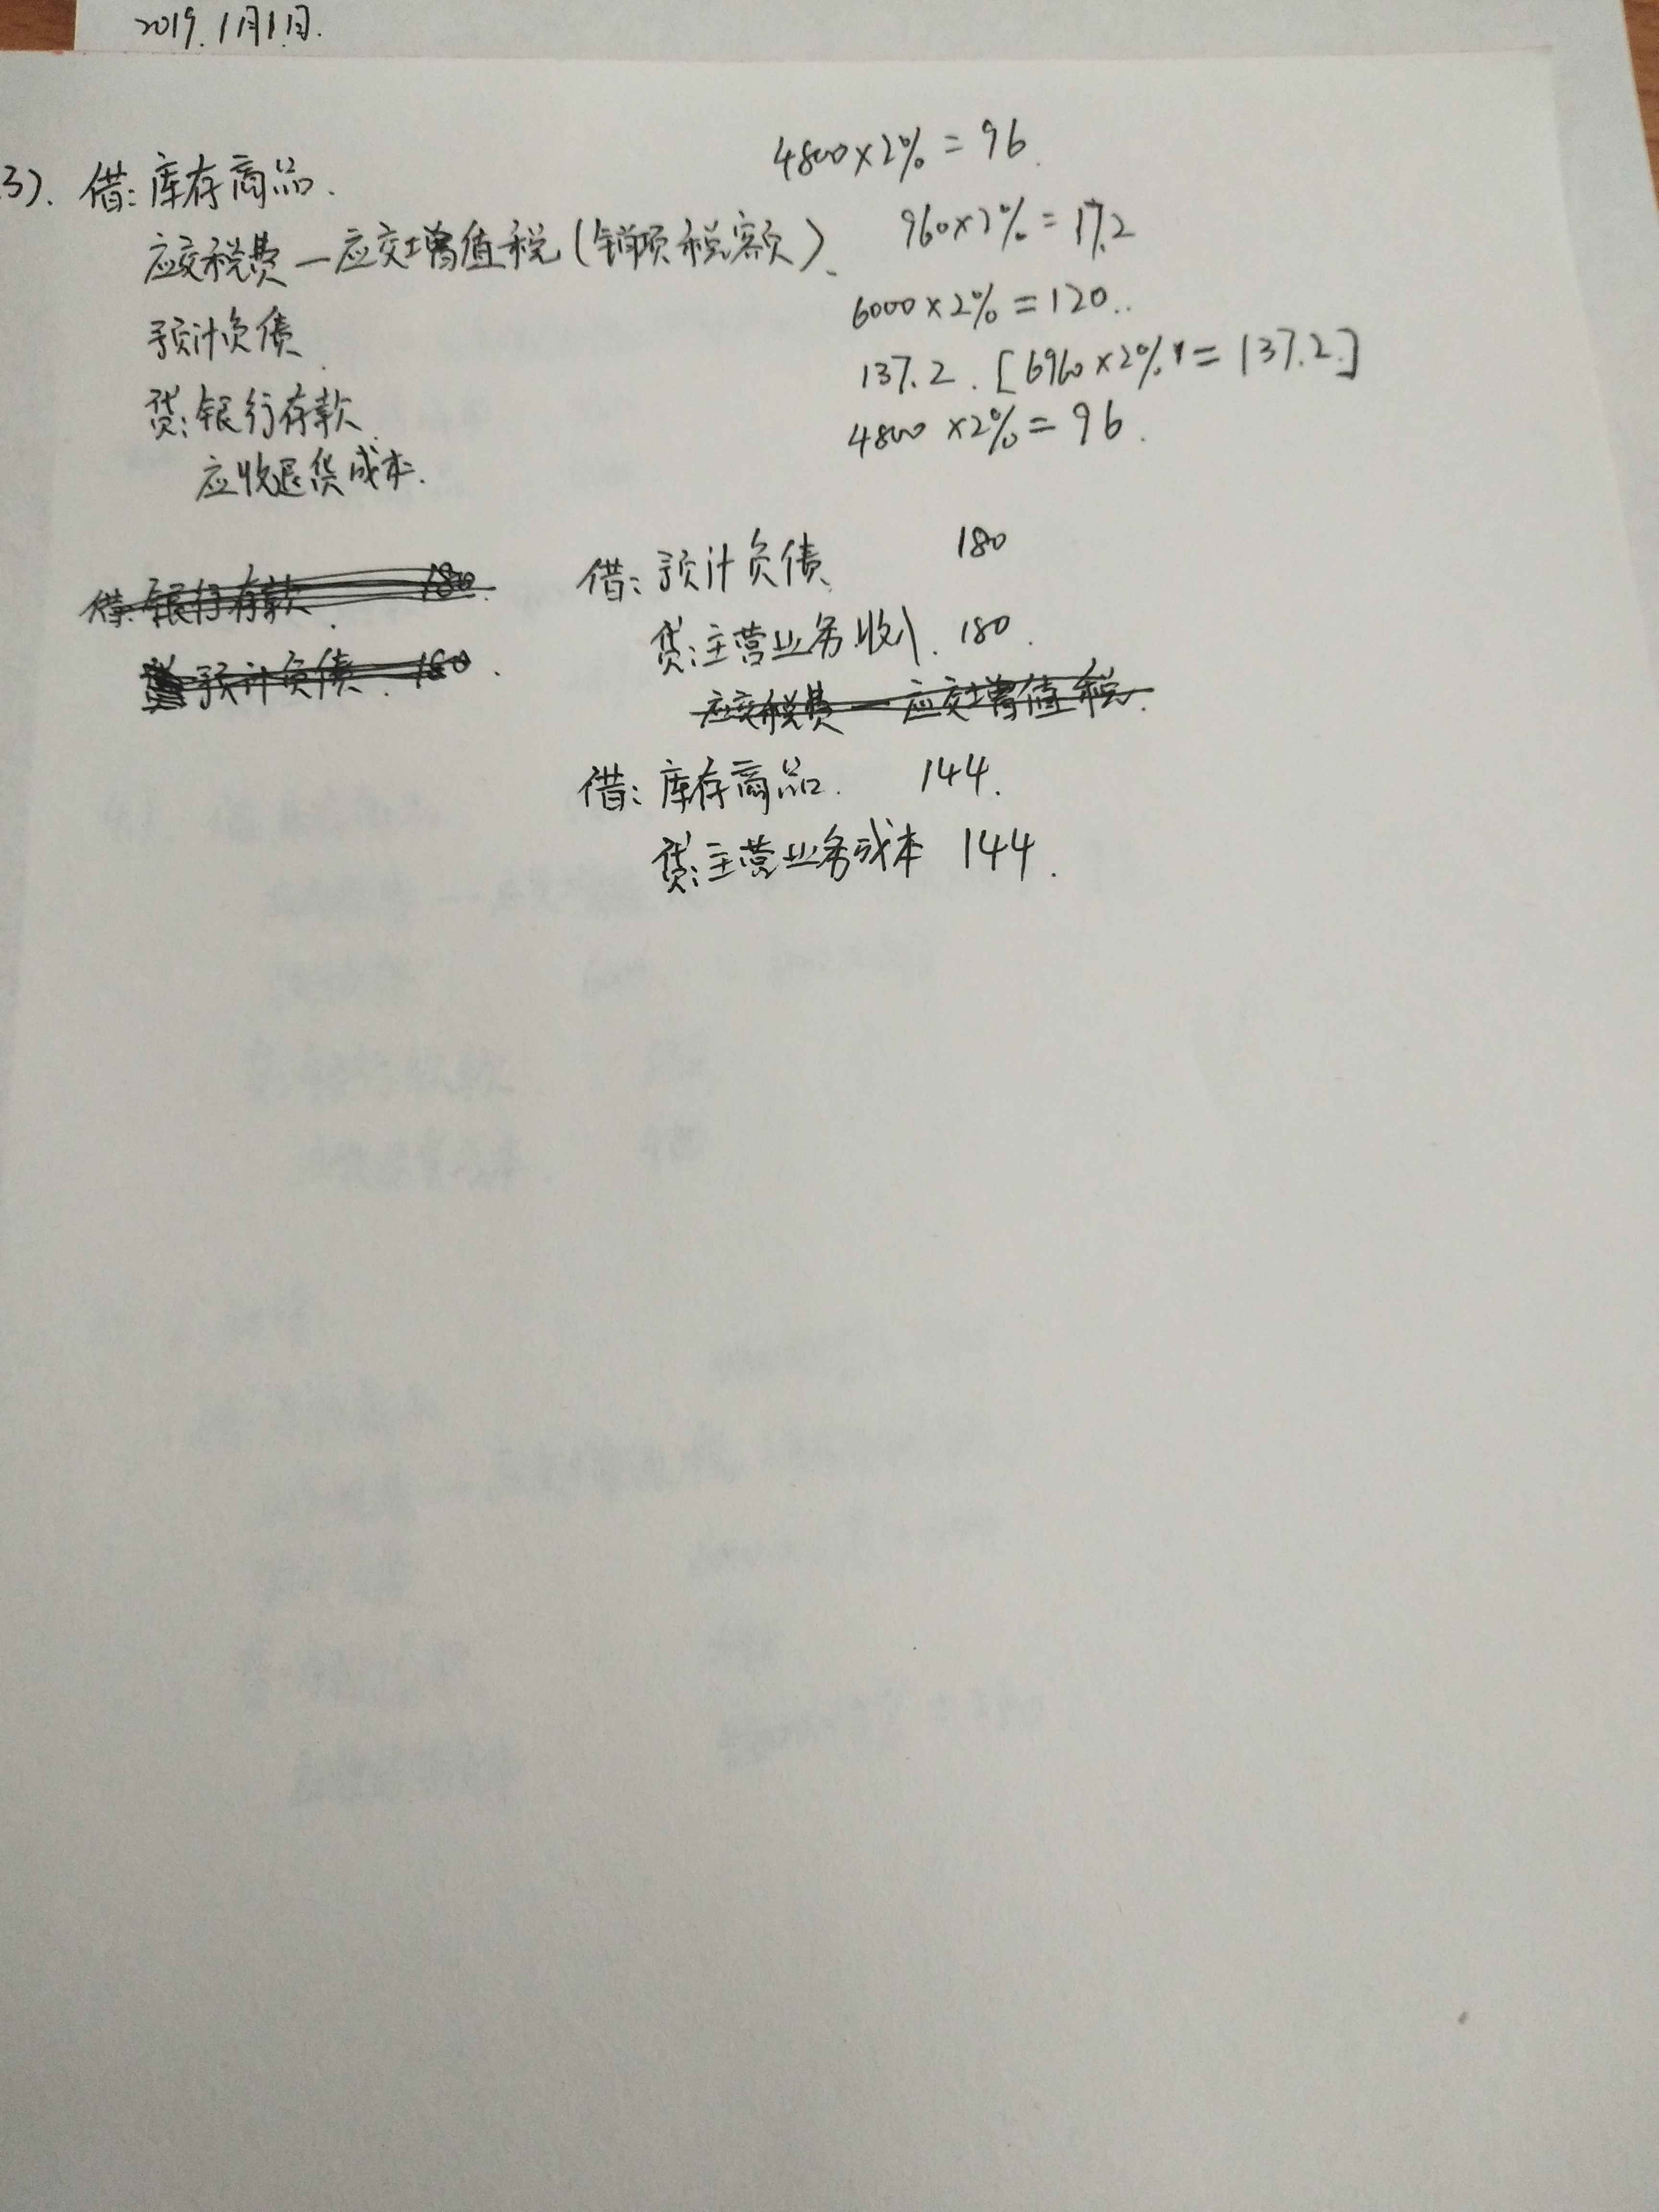 2019.1月1日.
3). 借: 库存商品. 4800×2% = 96.
应交税费—应交增值税(销项税额). 960×2% = 17.2
预计负债. 6000×2% = 120..
贷: 银行存款. 137.2. [6960×2% = 137.2.]
应收退货成本. 4800×2% = 96.
借: 银行存款. 180.
贷 预计负债. 180.
借: 预计负债. 180
贷: 主营业务收入. 180.
应交税费—应交增值税.
借: 库存商品. 144.
贷: 主营业务成本 144.